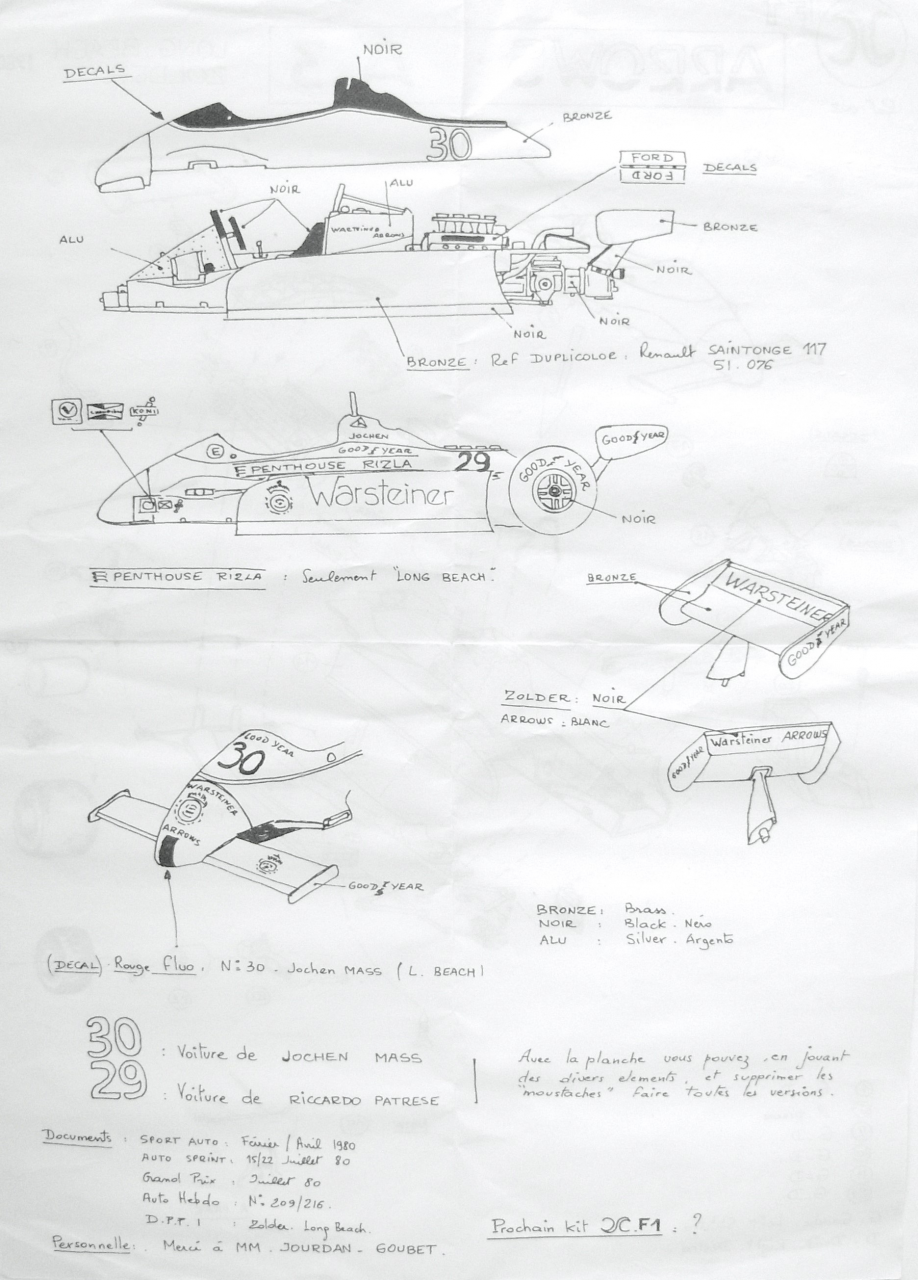 NOIR
DECALS
BRONZE
30
FORD
FORD
DECALS
NOIR
ALU
WARSTEINER
ARROWS
BRONZE
ALU
NOIR
NOIR
NOIR
BRONZE : Ref DUPLICOLOR : Renault SAINTONGE 117
51.076
KONI
JOCHEN
GOODYEAR
E
PENTHOUSE RIZLA
29
GOODYEAR
GOODYEAR
Warsteiner
NOIR
PENTHOUSE RIZLA : Seulement "LONG BEACH".
BRONZE
WARSTEINER
GOODYEAR
ZOLDER : NOIR
ARROWS : BLANC
Warsteiner ARROWS
GOODYEAR
GOODYEAR
30
WARSTEINER
ARROWS
GOODYEAR
BRONZE : Brass.
NOIR : Black - Nero
ALU : Silver - Argento
(DECAL) Rouge Fluo. N° 30 - Jochen MASS (L. BEACH)
30 : Voiture de JOCHEN MASS
29 : Voiture de RICCARDO PATRESE
Avec la planche vous pouvez, en jouant
des divers elements, et supprimer les
"moustaches" faire toutes les versions.
Documents : SPORT AUTO : Février / Avril 1980
AUTO SPRINT : 15/22 Juillet 80
Grand Prix : Juillet 80
Auto Hebdo : N° 209/216.
D.P.P.I : Zolder. Long Beach.
Personnelle : Merci à MM. JOURDAN - GOUBET.
Prochain kit JC.F1 : ?